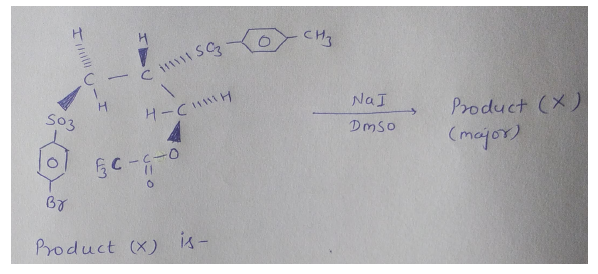 H H
SO3 CH3
C C
H H C H
SO3
F3C C O
O
Br
NaI
DMSO
Product (X)
(major)
Product (X) is-